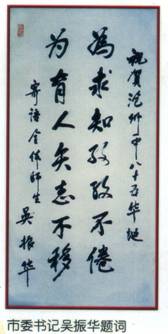 祝贺范县中八十五华诞
為求知孜孜不倦
为育人矢志不移
寄语全体师生
吴振华
市委书记吴振华题词